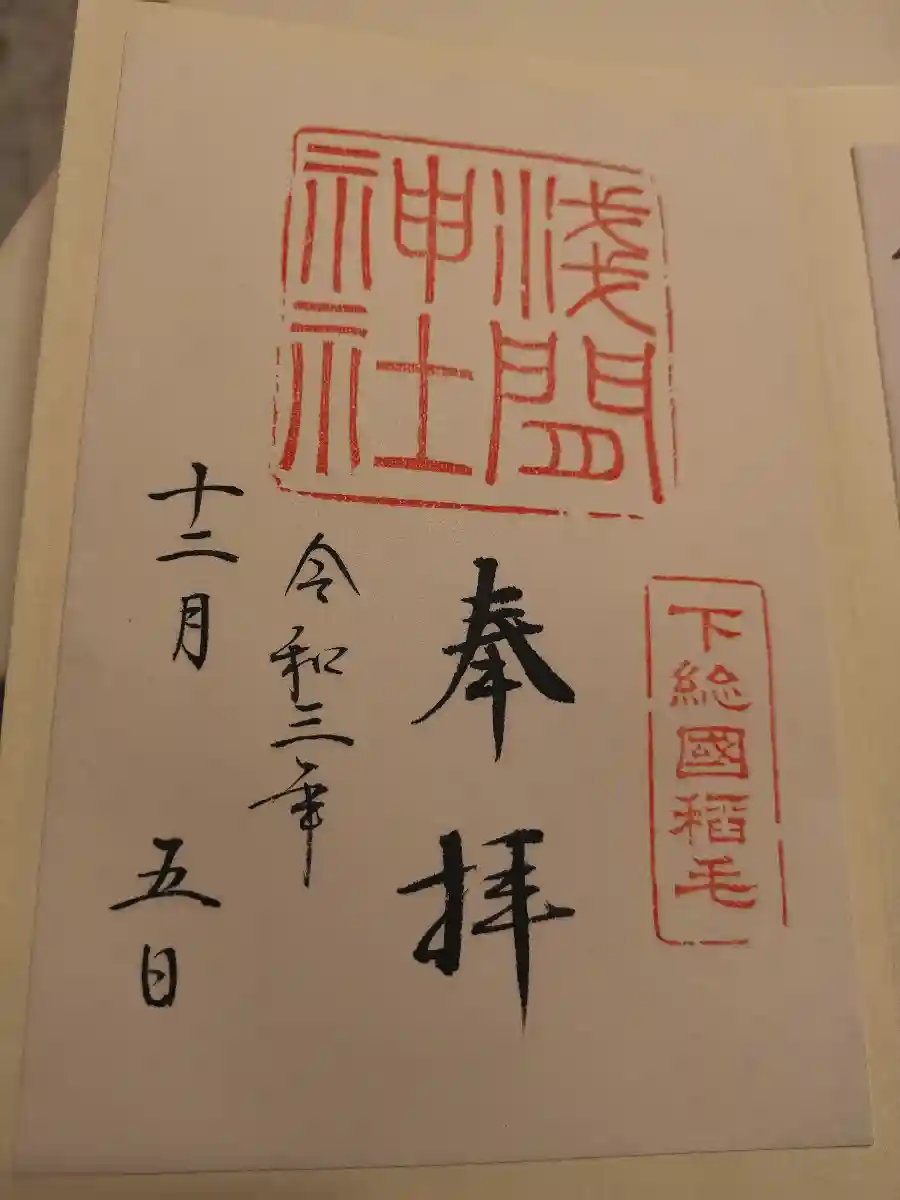 下総國稲毛
浅間
神社
奉拝
令和三年
十二月 五日